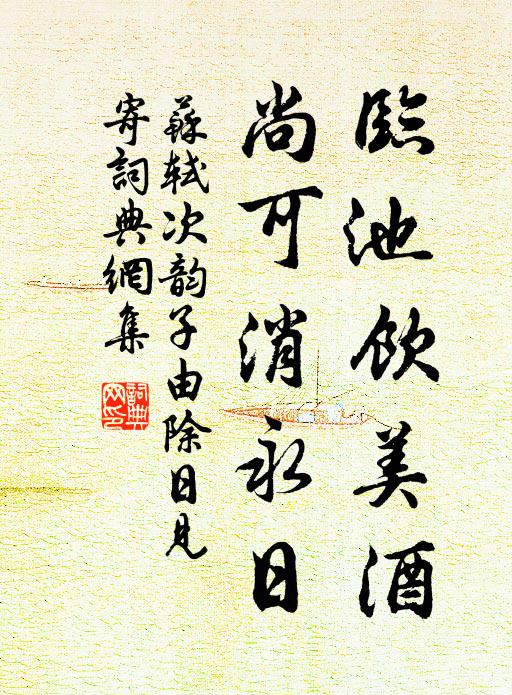 臨池飲美酒
尚可消永日
蘇軾次韵子由除日見
寄詞典網集
詞典
网印